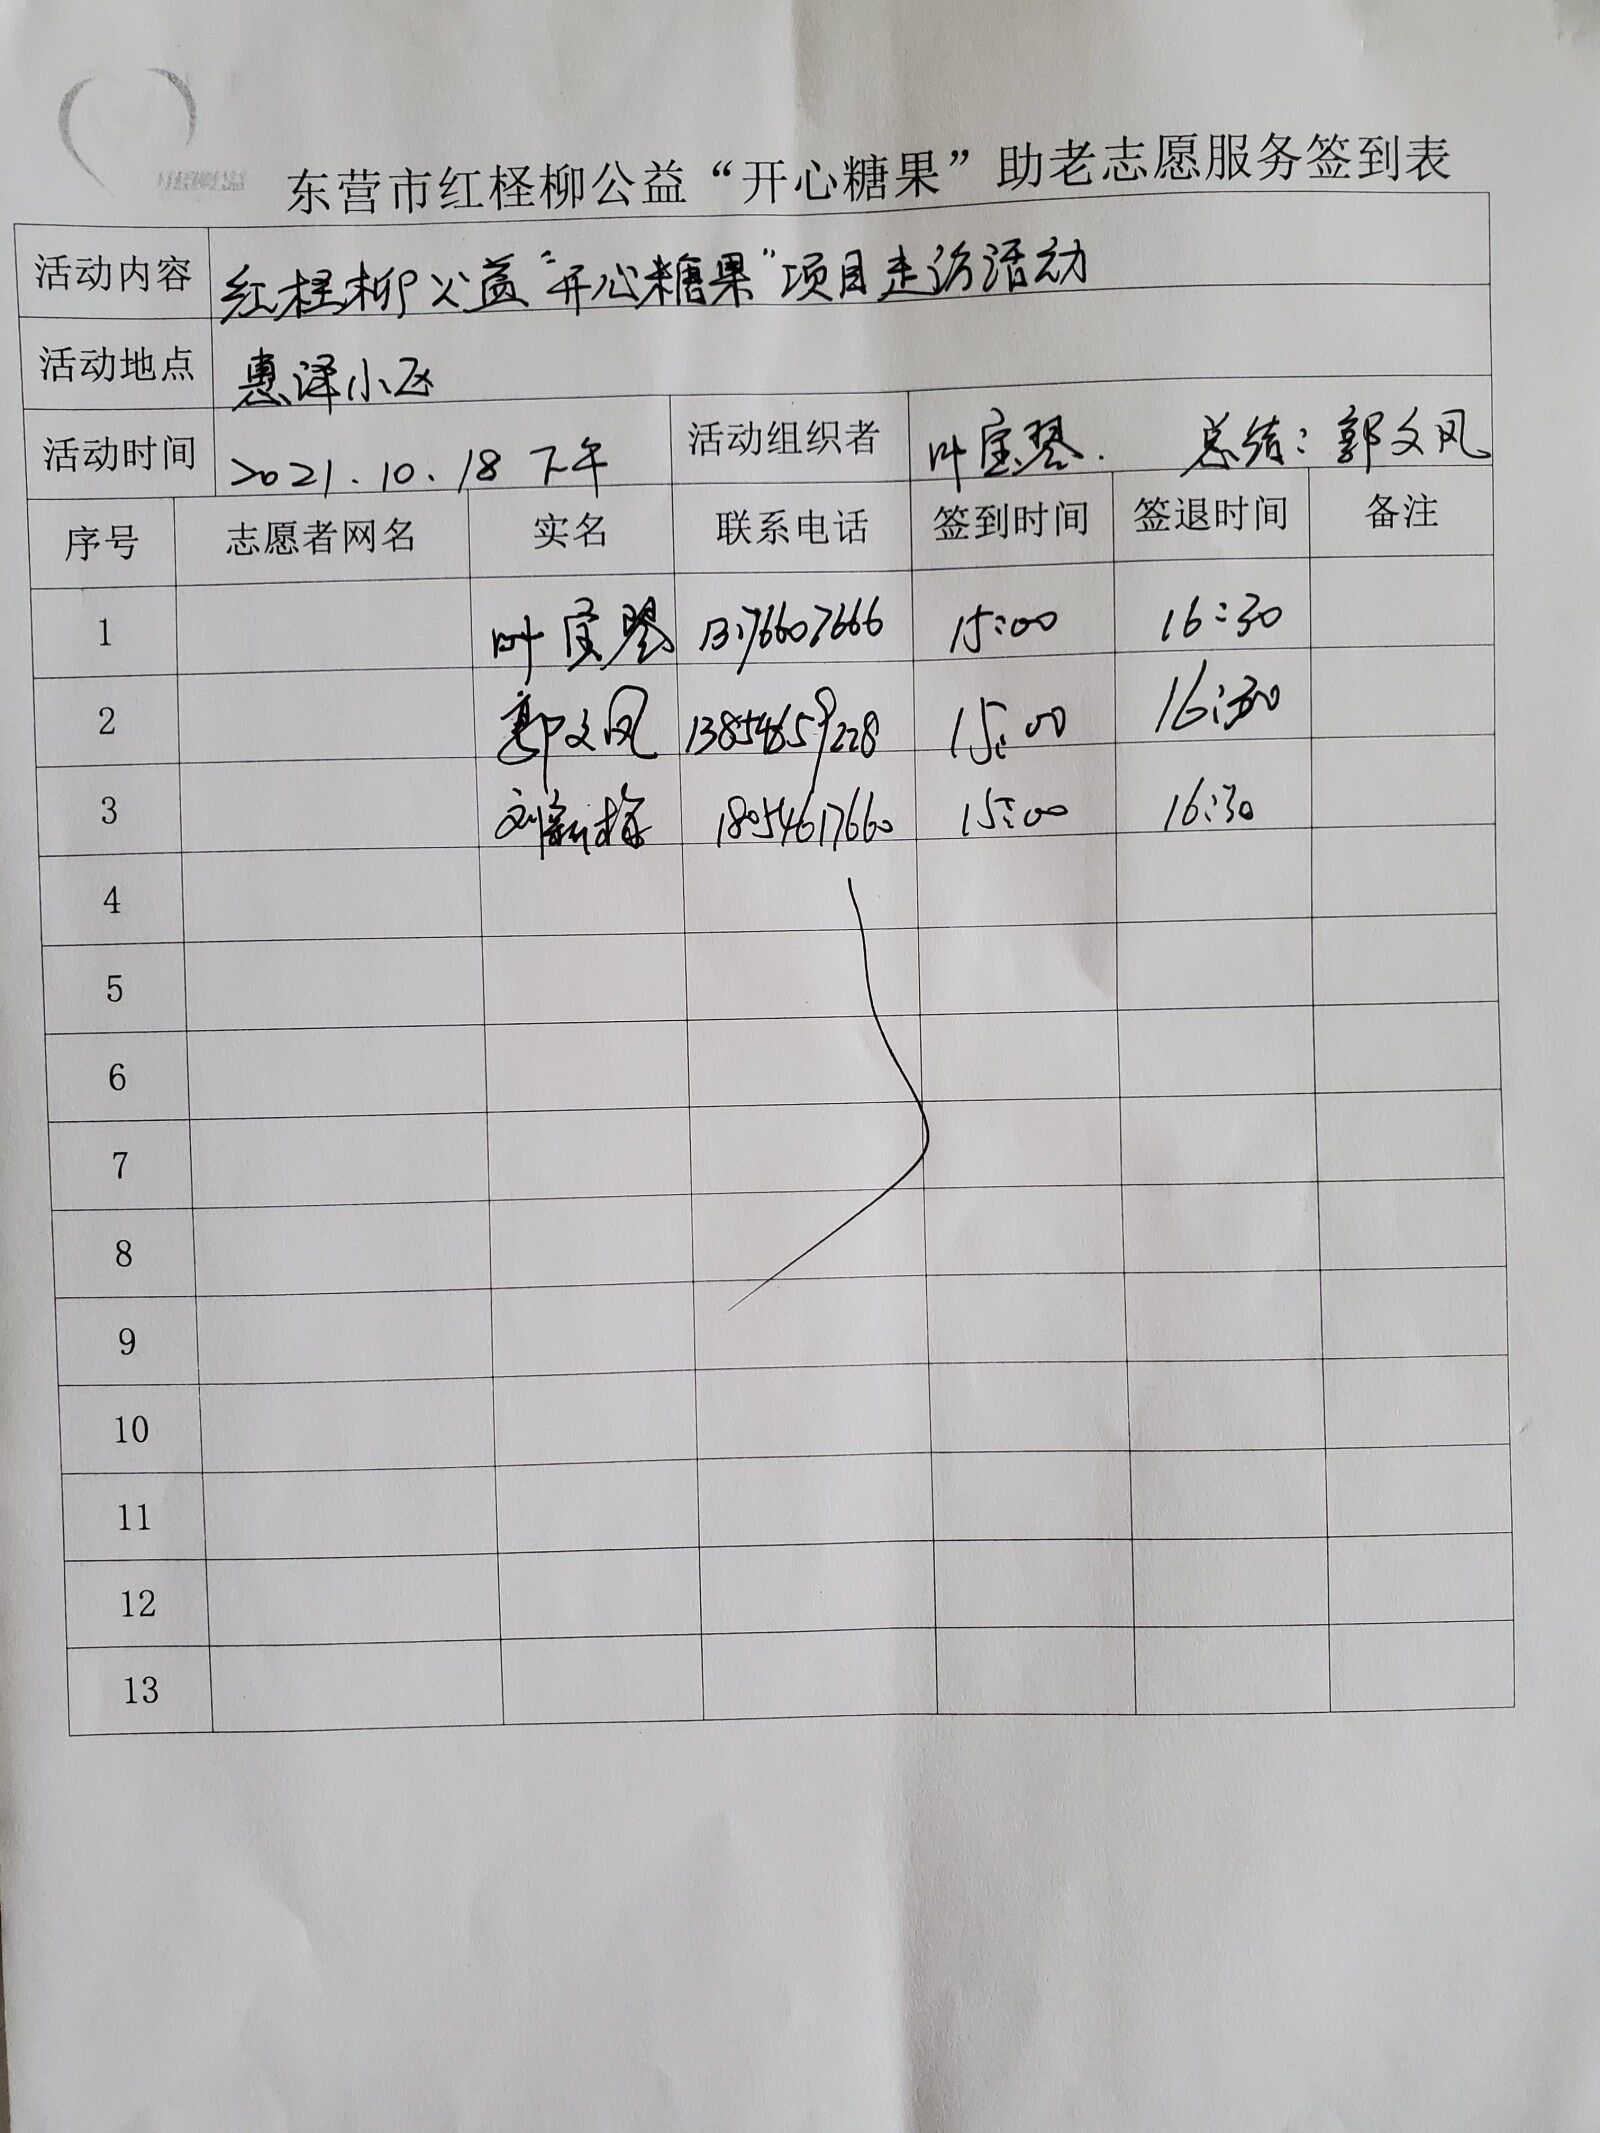 东营市红柽柳公益“开心糖果”助老志愿服务签到表
活动内容 红柽柳公益“开心糖果”项目走访活动
活动地点 惠泽小区
活动时间 2021.10.18 下午 活动组织者 叶宝琴. 总结:郭文风
序号 志愿者网名 实名 联系电话 签到时间 签退时间 备注
1 叶宝琴 13176607666 15:00 16:30
2 郭文风 13854659228 15:00 16:30
3 刘新 18054617660 15:00 16:30
4
5
6
7
8
9
10
11
12
13